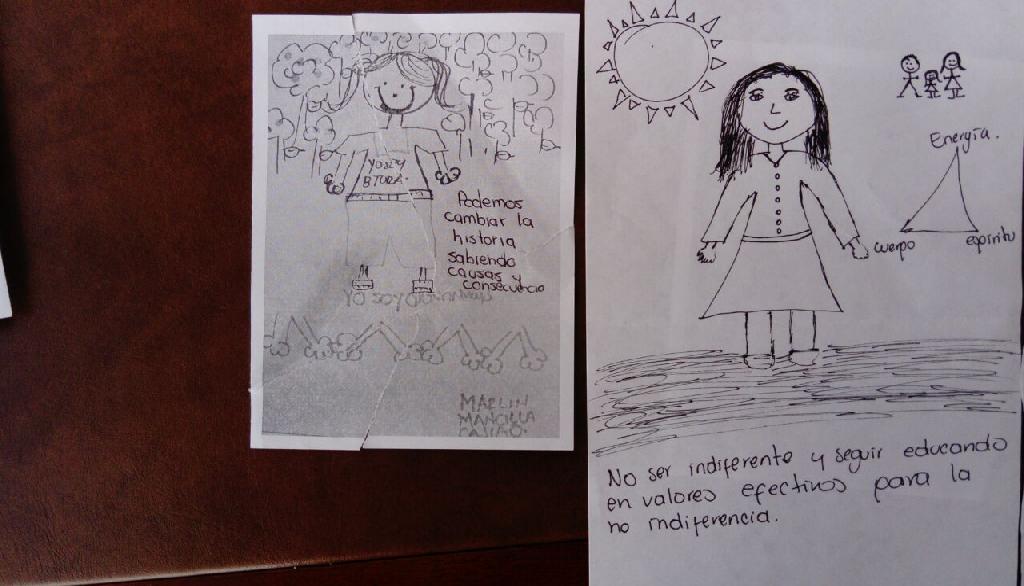 YO SOY
BTURA.
Podemos
cambiar la
historia
sabiendo
causas y
consecuencia
Yo soy
MARLIN
MANCILLA
Energía.
cuerpo
espíritu
No ser indiferente y seguir educando
en valores efectivos para la
no indiferencia.